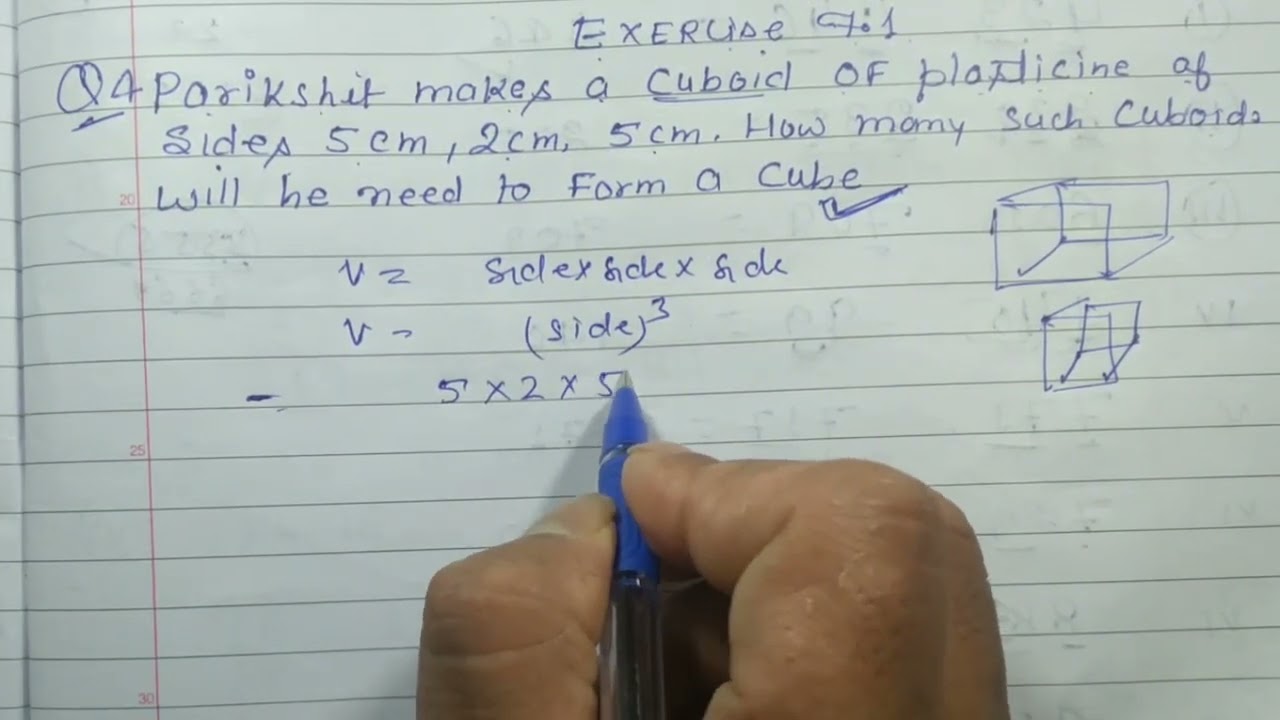 EXERCISE 7.1
Q4 Parikshit makes a cuboid OF plasticine of
Sides 5cm, 2cm, 5cm. How many such cuboids
will he need to Form a cube
V = side x side x side
V = (side)³
- 5 × 2 × 5
20
25
30